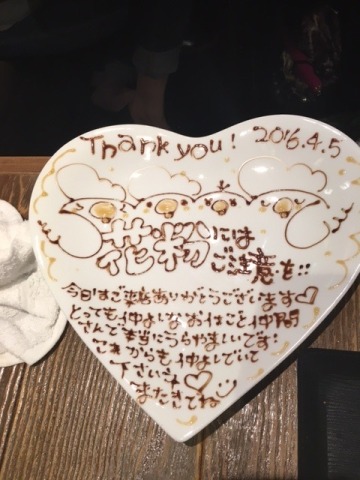 Thank you! 2016.4.5
花粉には
ご注意を!!
今日はご来店ありがとうございます♡
とっても仲よしなおはこと仲間
さんで本当にうらやましいです!
これからも仲よしでいて
下さいネ♡
またきてね